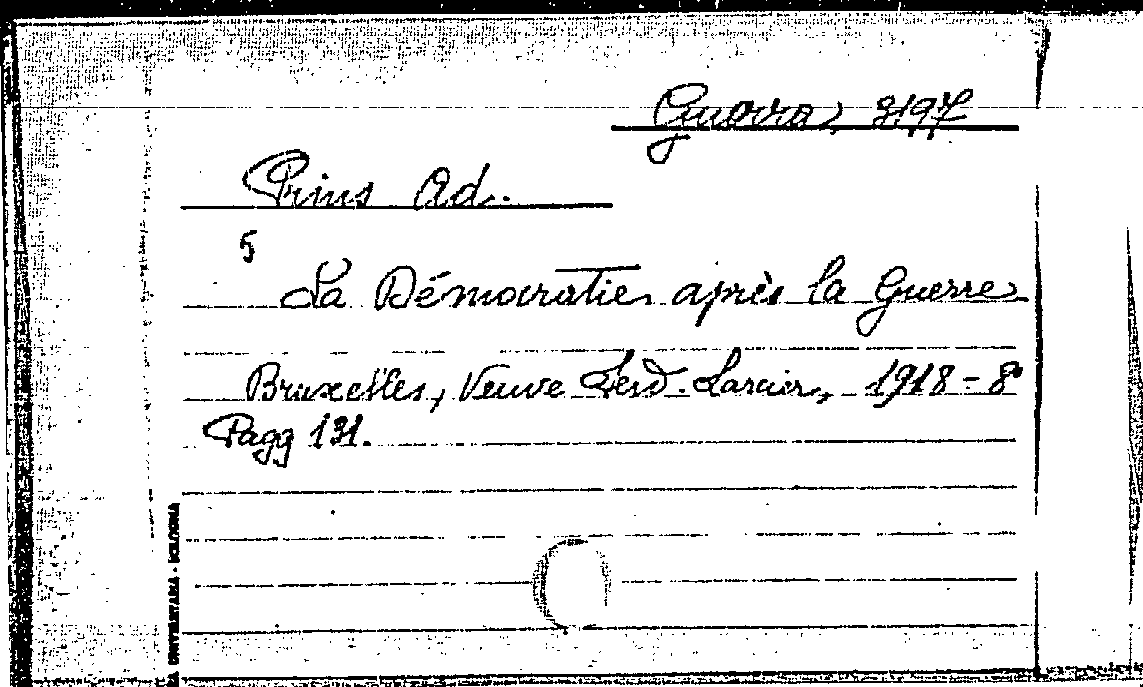 Guerra, 3197
Prins Ad.
5
La Démocratie après la Guerre
Bruxelles, Veuve Ferd. Larcier, 1918 - 8°
Pagg 131.
UNIVERSITARIA - BOLOGNA